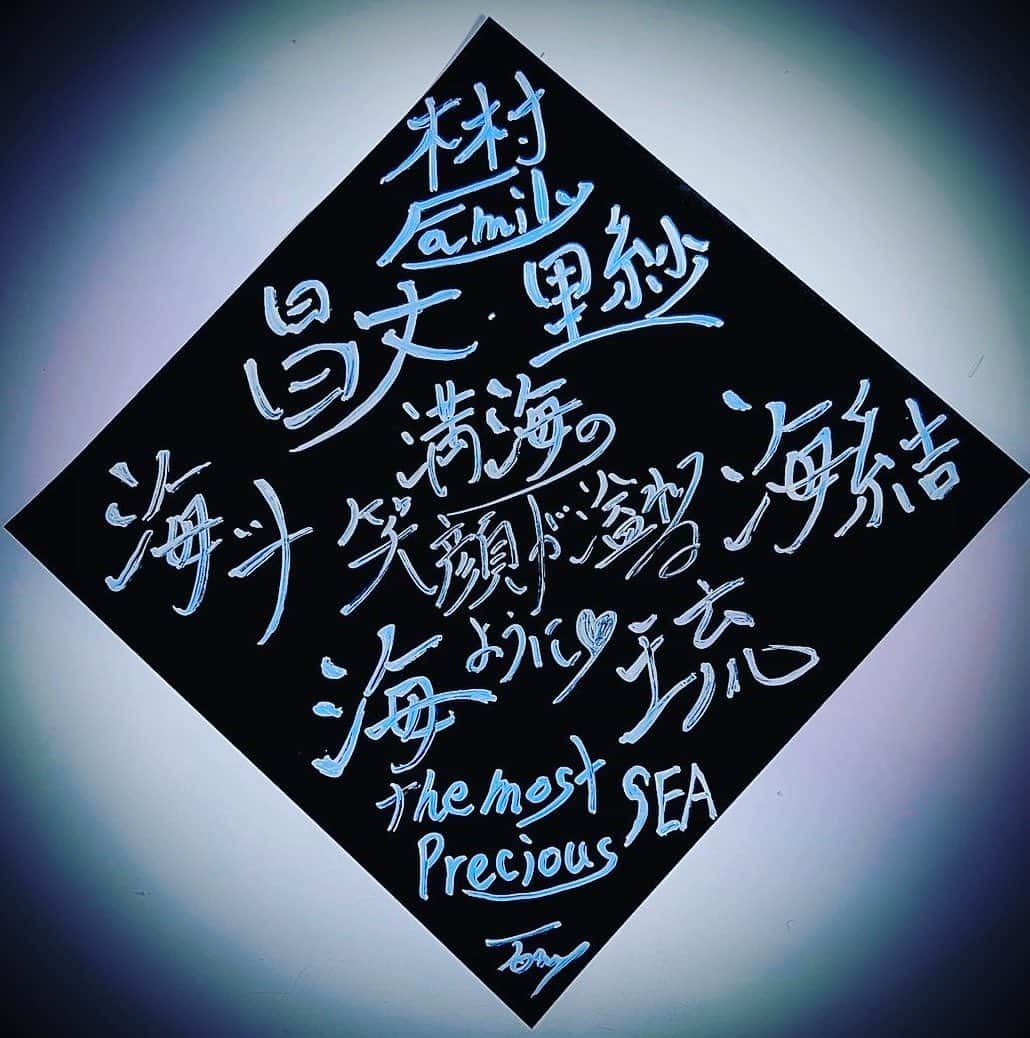 木村
Family
昌文・里紗
満海の
海斗
笑顔が溢れる
海結
ように♡
海琉
The most
Precious SEA
Tony